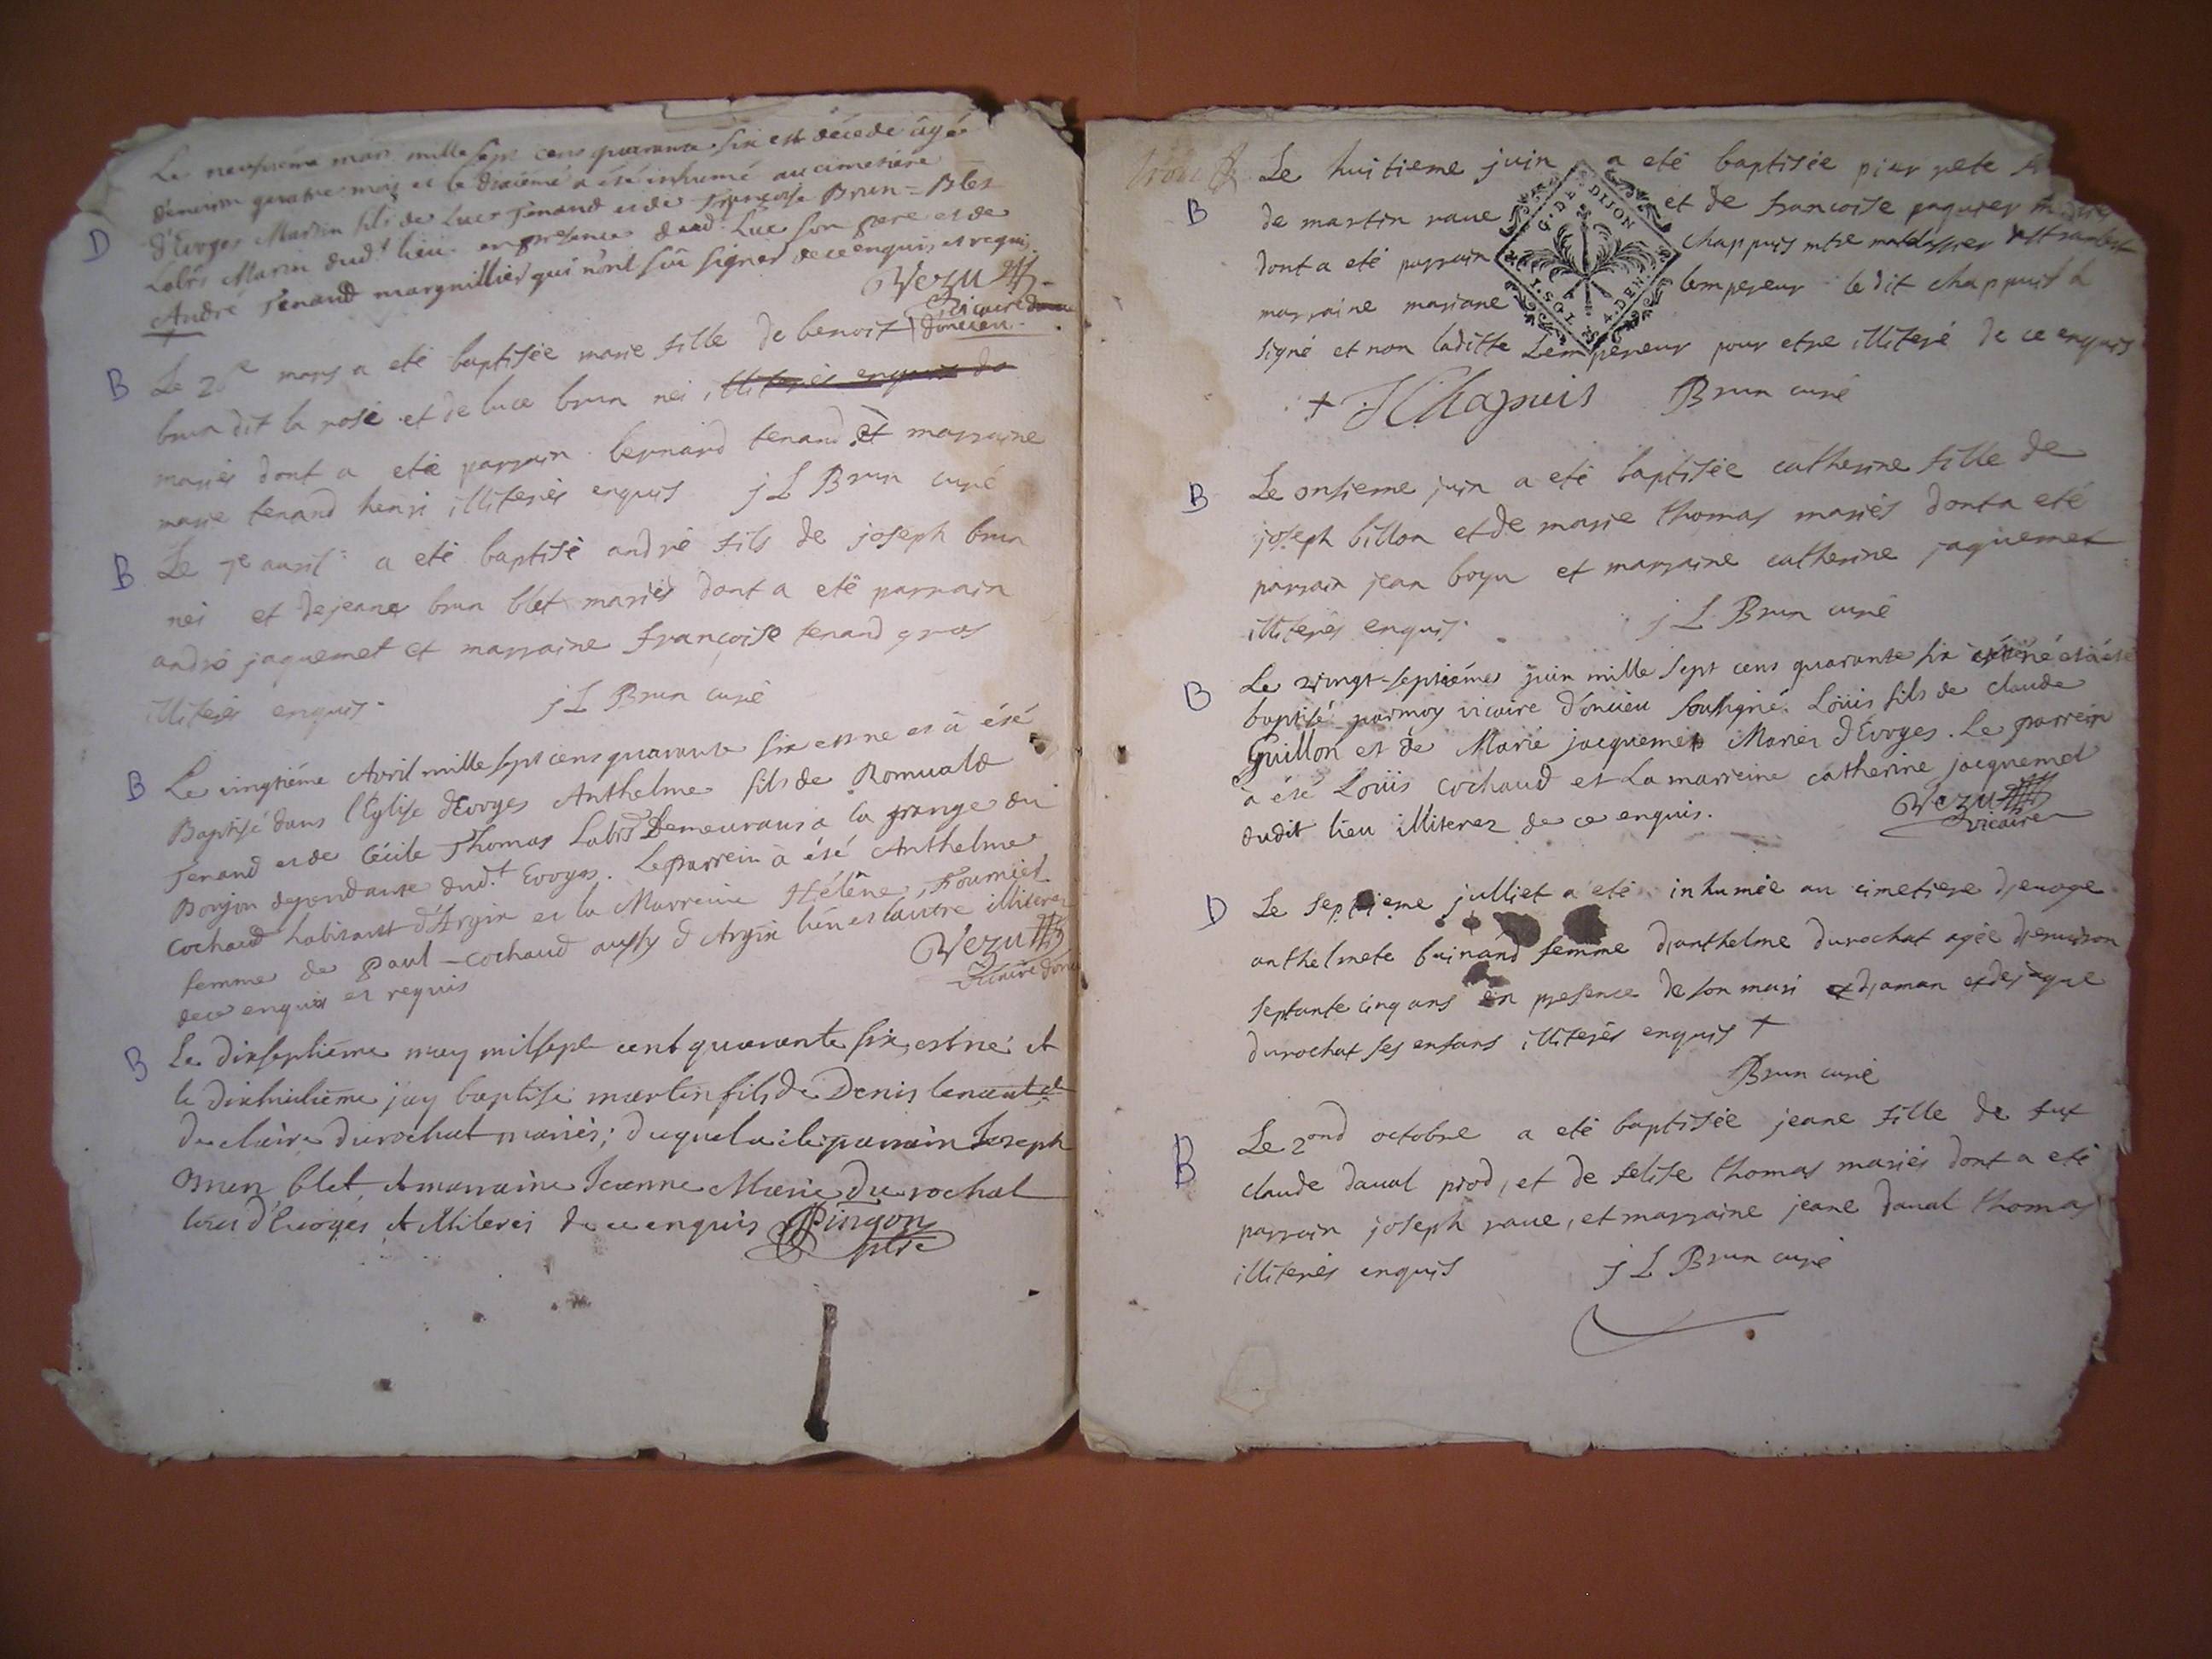 Le neufvième mars mille sept cens quarante six est décédé âgé
d'environ quatre mois et le dixième a été inhumé au cimetière
D
d'Evoges Martin fils de Luc Tenand et de Françoise Brun=Blet
Labrs Marin dud.t lieu en presence dud. Luc son pere et de
André Tenand margnillier qui n'ont sû signer de ce enquis et requis.
Vezu
Vicaire
d'oncieu
B
Le 26e mars a eté baptisée marie fille de benoit
brun dit la rose et de luce brun nei illiterés enquis de
mariés dont a eté parrain bernard tenand et marraine
marie tenand henri illiterés enquis j L Brun curé
B
Le 7e avril a eté baptisé andré fils de joseph brun
nei et de jeane brun blet mariés dont a eté parrain
andré jaquemet et marraine françoise tenand gros
illiterés enquis. j L Brun curé
B
Le vingtiéme Avril mille sept cens quarante six est ne et à été
Baptisé dans l'Eglise d'Evoges Anthelme fils de Romuald
Tenand et de Cécile Thomas Labrs Demeurans à la grange du
Bonjon dependance dud.t Evoges. Le parrein à été Anthelme
Cochaud habitant d'Argis et la Marreine Hélêne Fournier
femme de Paul Cochaud aussy d'Argis l'un et l'autre illiterez
de ce enquis et requis
Vezu
Vicaire d'onc
B
Le dixseptième may mil sept cent quarante six, est né et
le dixhuitième j'ay baptisé martin fils de Denis tenand et
de claire durochat mariés; duquel a été parrain Joseph
Brun blet, et marraine Jeanne Marie du rochat
tous d'Evoges et illiterés de ce enquis Pingon
ptre
B
Le huitieme juin a eté baptisée pierrete
de martin rave et de francoise paquier
dont a eté parrain chappuis mtre
marraine mariane lempereur ledit chappuis a
signé et non laditte Lempereur pour etre illiteré de ce enquis
+ Chapuis Brun curé
G. DE DIJON
4. DEN.
B
Le onsieme juin a eté baptisée catherine fille de
joseph billon et de marie thomas mariés dont a eté
parrain jean boyu et marraine catherine jaquemet
illiterés enquis. j L Brun curé
B
Le vingt-septiéme juin mille sept cens quarante six est né et à été
baptisé par moy vicaire d'oncieu soussigné. Loüis fils de claude
Guillon et de Marie jacquemet Mariez d'Evoges. Le parrein
à été Loüis cochaud et La marreine catherine jacquemet
dudit lieu illiterez de ce enquis.
Vezu
vicaire
D
Le septieme julliet a eté inhumée au cimetiere d'evoge
anthelmete buinand femme d'anthelme durochat agée d'environ
septante cinq ans en presence de son mari et d'aman et de jaque
durochat ses enfans illiterés enquis +
Brun curé
B
Le 2ond octobre a eté baptisée jeane fille de fut
claude daval prod, et de felise thomas mariés dont a eté
parrain joseph rave, et marraine jeane daval thomas
illiterés enquis j L Brun curé